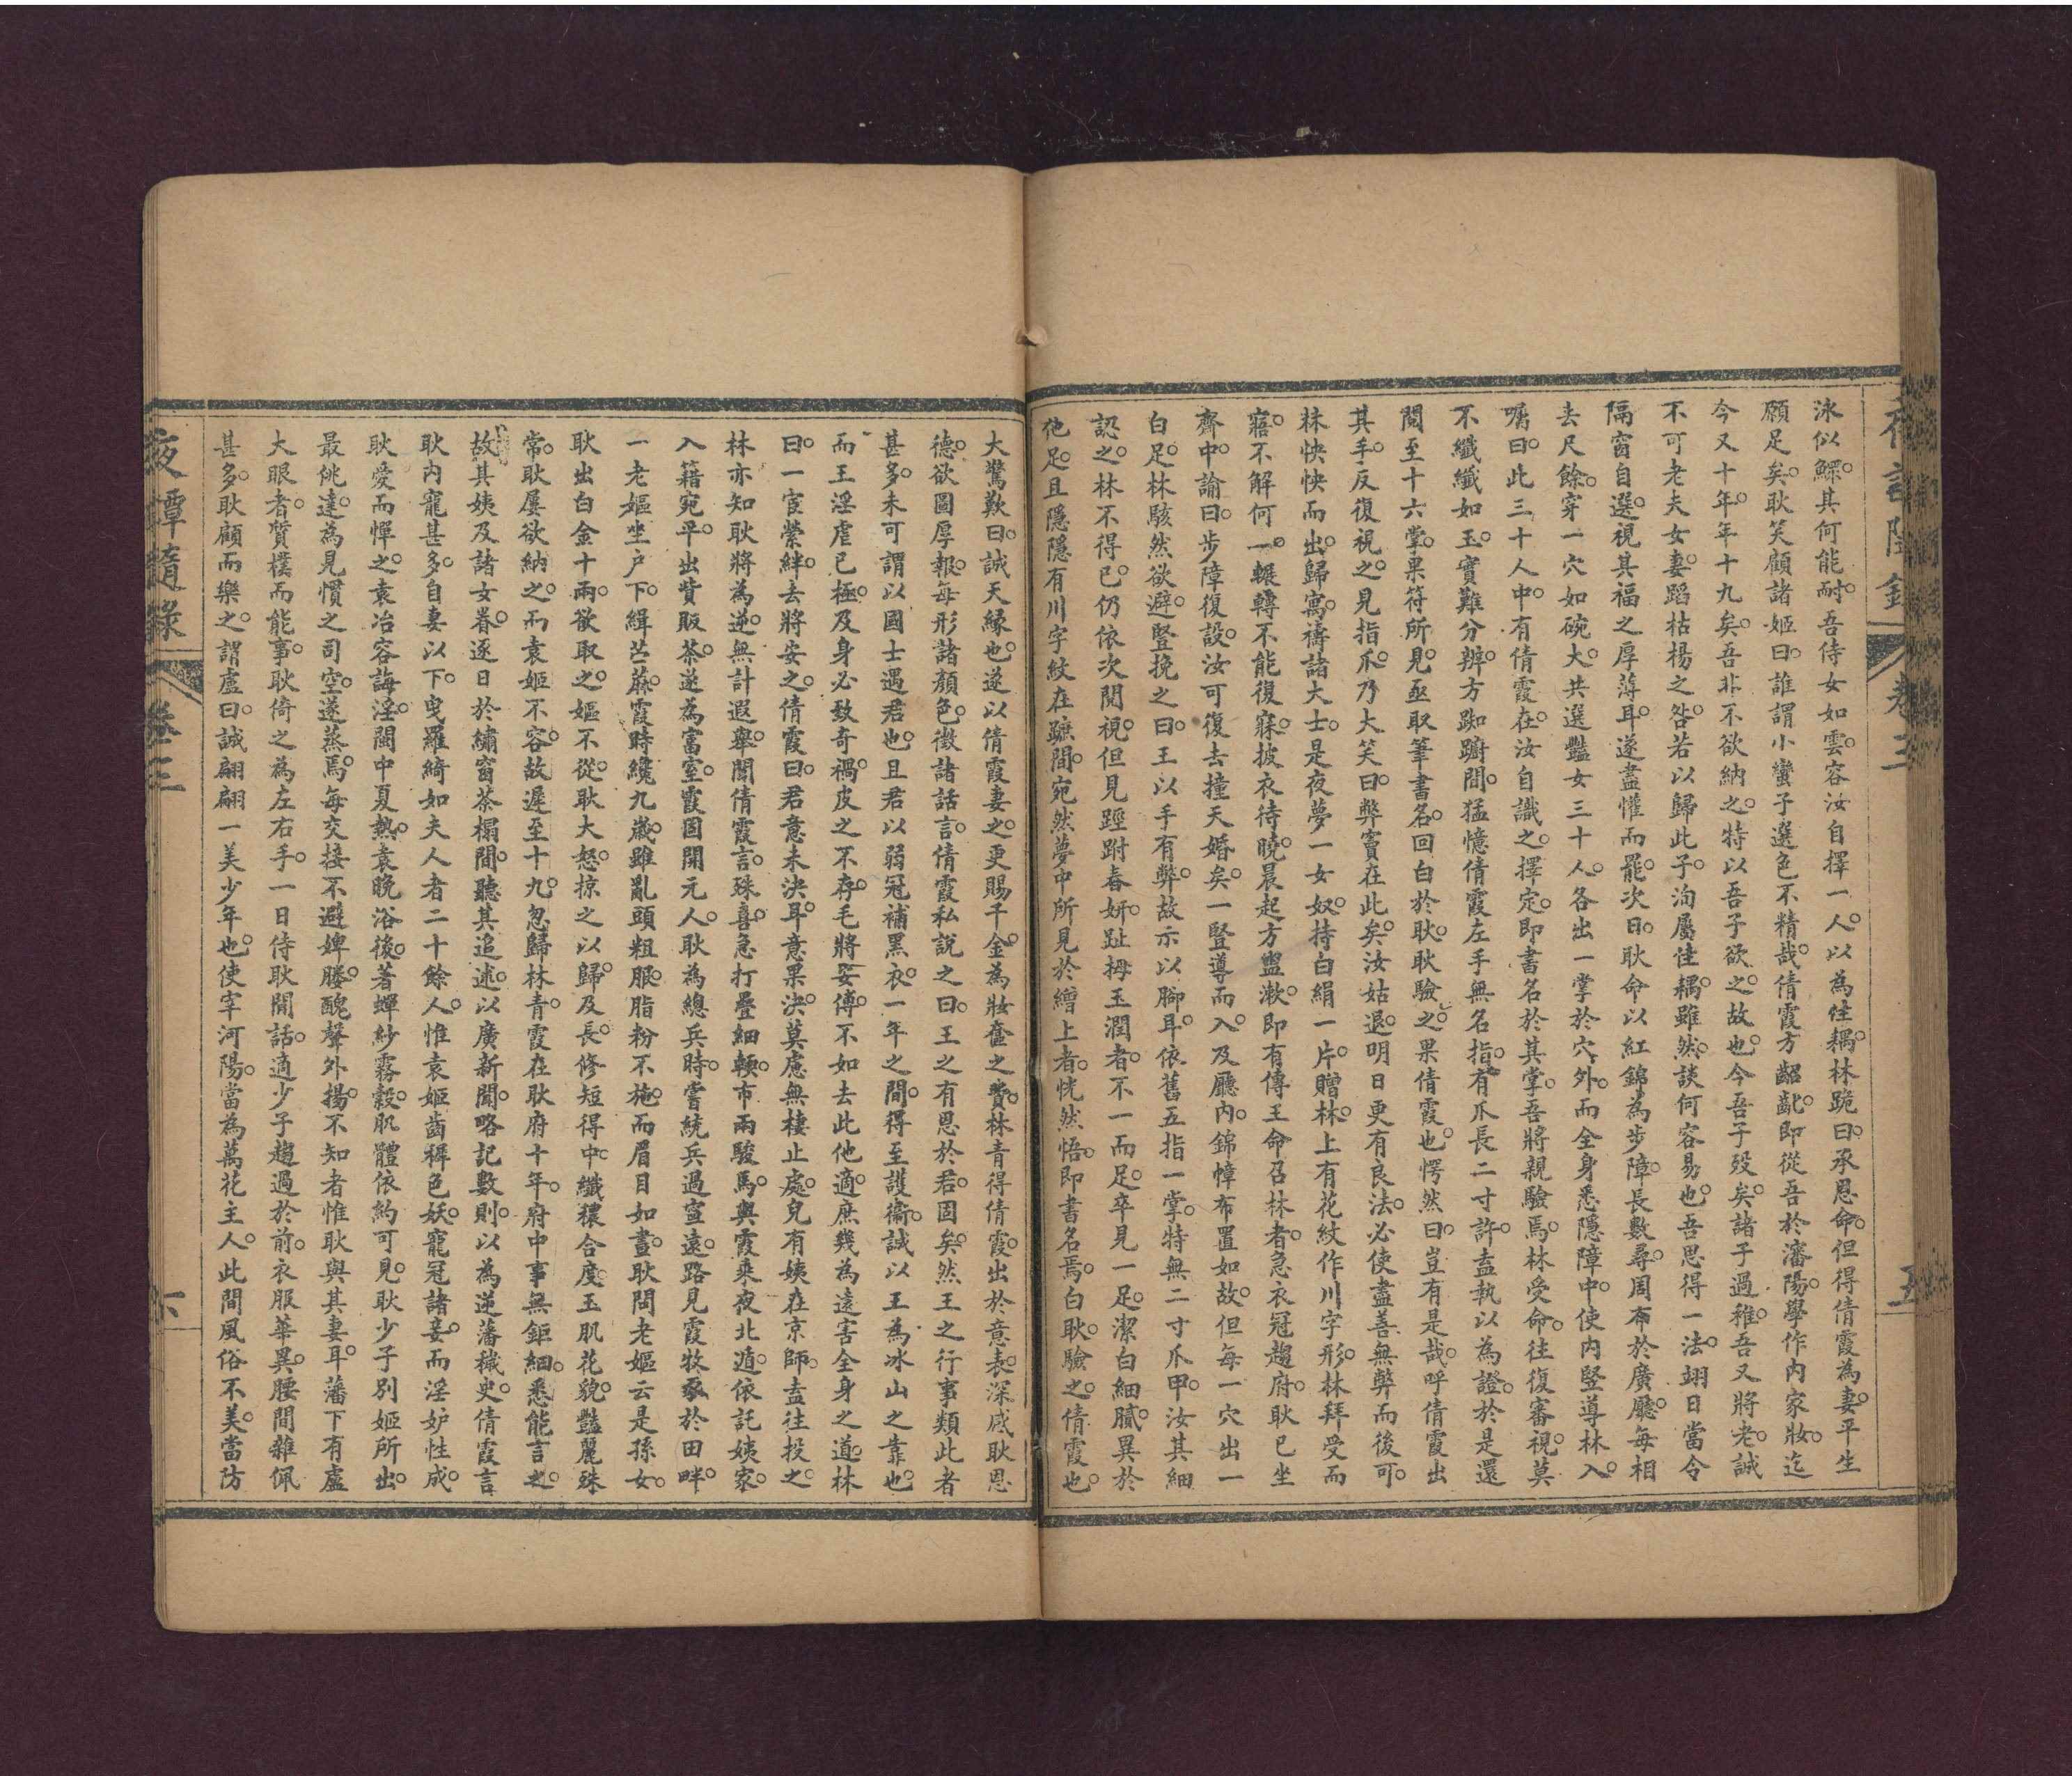 夜譚隨錄
卷三
五
泳似鰥。其何能耐。吾侍女如雲。容汝自擇一人。以為佳耦。林跪曰。承恩命。但得倩霞為妻。平生
願足矣。耿笑顧諸姬曰。誰謂小蠻子選色不精哉。倩霞方齠齔。即從吾於瀋陽。學作內家妝。迄
今又十年。年十九矣。吾非不欲納之。特以吾子欲之。故也。今吾子歿矣。諸子過稚。吾又將老。誠
不可老夫女妻。蹈枯楊之咎。若以歸此子。洵屬佳耦。雖然。談何容易也。吾思得一法。翊日當令
隔窗自選。視其福之厚薄耳。遂盡懽而罷。次日。耿命以紅錦為步障。長數尋。周布於廣廳。每相
去尺餘。穿一穴如碗大。共選豔女三十人。各出一掌於穴外。而全身悉隱障中。使內竪導林入。
囑曰。此三十人中。有倩霞在。汝自識之。擇定。即書名於其掌。吾將親驗焉。林受命。往復審視。莫
不纖纖如玉。實難分辨。方踟躕間。猛憶倩霞左手無名指。有爪長二寸許。盍執以為證。於是還
閱至十六掌。果符所見。亟取筆書名。回白於耿。耿驗之。果倩霞也。愕然曰。豈有是哉。呼倩霞出
其手。反復視之。見指爪。乃大笑曰。弊竇在此矣。汝姑退。明日更有良法。必使盡善無弊而後可。
林怏怏而出。歸寓。禱諸大士。是夜夢一女奴。持白絹一片贈林。上有花紋作川字形。林拜受而
寤。不解何一。輾轉不能復寐。披衣待曉。晨起方盥漱。即有傳王命召林者。急衣冠趨府。耿已坐
齋中。諭曰。步障復設。汝可復去撞天婚矣。一豎導而入。及廳內。錦幛布置如故。但每一穴出一
白足。林駭然欲避。豎挽之曰。王以手有弊。故示以腳耳。依舊五指一掌。特無二寸爪甲。汝其細
認之。林不得已。仍依次閱視。但見脛跗春妍。趾拇玉潤者。不一而足。卒見一足。潔白細膩。異於
他足。且隱隱有川字紋在蹠間。宛然夢中所見於繒上者。恍然悟。即書名焉。白耿。驗之。倩霞也。
大驚歎曰。誠天緣也。遂以倩霞妻之。更賜千金。為妝奩之費。林青得倩霞。出於意表。深感耿恩
德。欲圖厚報。每形諸顏色。徵諸話言。倩霞私說之曰。王之有恩於君。固矣。然王之行事類此者
甚多。未可謂以國士遇君也。且君以弱冠補黑衣。一年之間。得至護衞。誠以王為冰山之靠也。
而王淫虐已極。及身必致奇禍。皮之不存。毛將安傅。不如去此他適。庶幾為遠害全身之道。林
曰。一宦縈絆。去將安之。倩霞曰。君意未決耳。意果決。莫慮無棲止處。兒有姨在京師。盍往投之。
林亦知耿將為逆。無計遐舉。聞倩霞言。殊喜。急打疊細輭。市兩駿馬。與霞乘夜北遁。依託姨家。
入籍宛平。出貲販茶。遂為富室。霞固開元人。耿為總兵時。嘗統兵過宣遠。路見霞牧豕於田畔。
一老嫗坐戶下。緝苎蔴。霞時纔九歲。雖亂頭粗服。脂粉不施。而眉目如畫。耿問老嫗。云是孫女。
耿出白金十兩。欲取之。嫗不從。耿大怒。掠之以歸。及長。修短得中。纖穠合度。玉肌花貌。豔麗殊
常。耿屢欲納之。而袁姬不容。故遲至十九。忽歸林青。霞在耿府十年。府中事無鉅細。悉能言之。
故其姨及諸女眷。逐日於繡窗茶榻間。聽其追述。以廣新聞。略記數則。以為逆藩穢史。倩霞言
耿內寵甚多。自妻以下。曳羅綺如夫人者二十餘人。惟袁姬齒稺色妖。寵冠諸妾。而淫妒性成。
耿愛而憚之。袁冶容誨淫。閩中夏熱。袁晚浴後。著蟬紗霧縠。肌體依約可見。耿少子別姬所出。
最佻達。為見慣之司空。遂蒸焉。每交接不避婢媵。醜聲外揚。不知者惟耿與其妻耳。藩下有盧
大眼者。質樸而能事。耿倚之為左右手。一日侍耿閒話。適少子趨過於前。衣服華異。腰間雜佩
甚多。耿顧而樂之。謂盧曰。誠翩翩一美少年也。使宰河陽。當為萬花主人。此間風俗不美。當防
夜譚隨錄
卷三
六